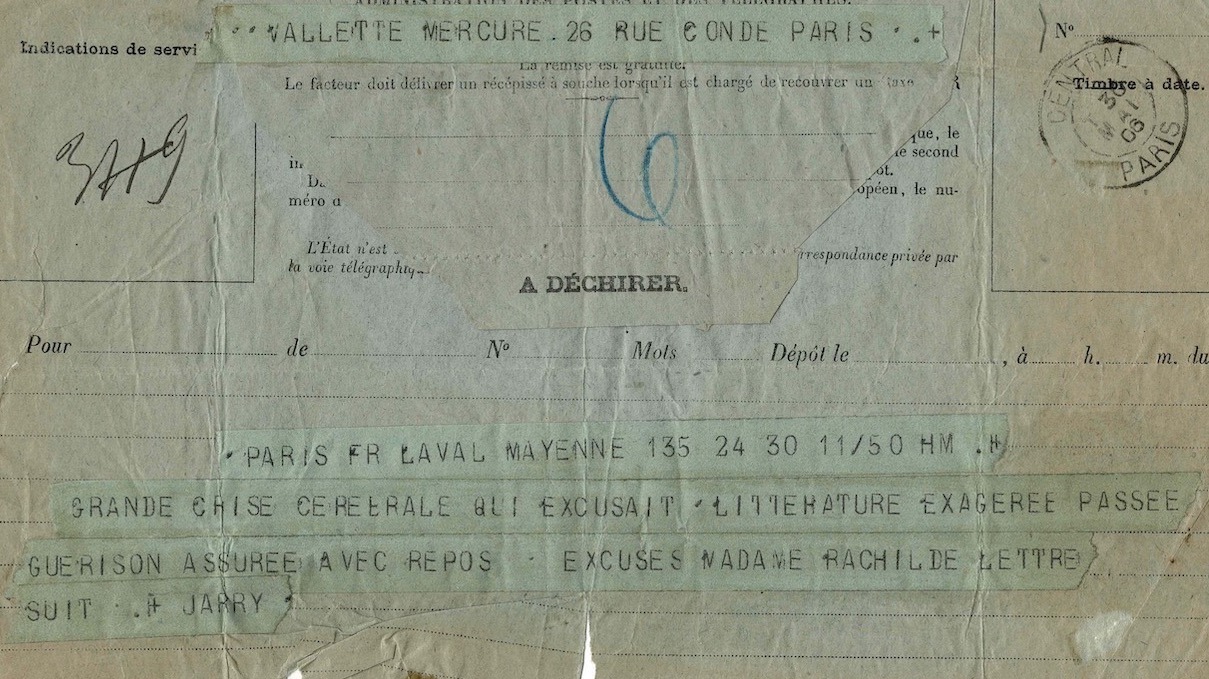 ADMINISTRATION DES POSTES ET DES TÉLÉGRAPHES.
VALLETTE MERCURE. 26 RUE CONDE PARIS . . +
Indications de servi
Nº
La remise est gratuite.
Le facteur doit délivrer un récépissé à souche lorsqu'il est chargé de recouvrer un taxe
Timbre à date.
CENTRAL
30
MAI
06
PARIS
6
que, le
le second
méro
opéen, le nu-
L'État n'est
rrespondance privée par
la voie télégraphiq
A DÉCHIRER.
Pour de Nº Mots Dépôt le , à h. m. du
PARIS FR LAVAL MAYENNE 135 24 30 11/50 HM . +
GRANDE CRISE CEREBRALE QUI EXCUSAIT LITTERATURE EXAGEREE PASSEE
GUERISON ASSUREE AVEC REPOS - EXCUSES MADAME RACHILDE LETTRE
SUIT . + JARRY